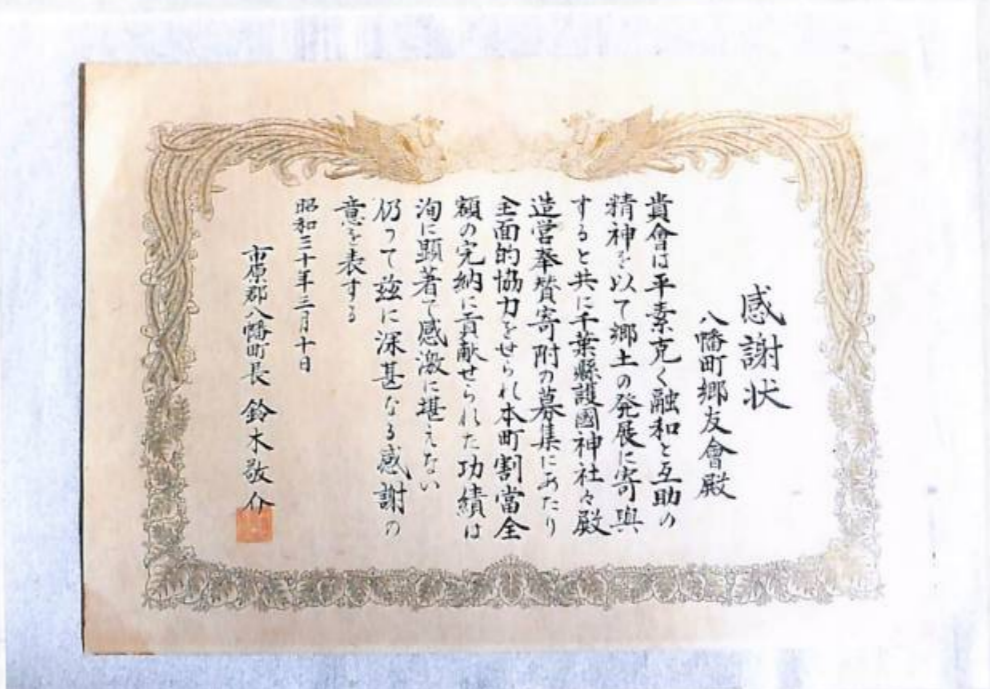 感謝状
八幡町郷友會殿
貴會は平素克く融和と互助の
精神を以て郷土の発展に寄與
すると共に千葉縣護國神社々殿
造営奉賛寄附の募集にあたり
全面的協力をせられ本町割當全
額の完納に貢献せられた功績は
洵に顕著で感激に堪えない
仍って茲に深甚なる感謝の
意を表する
昭和三十年三月十日
市原郡八幡町長 鈴木敬介